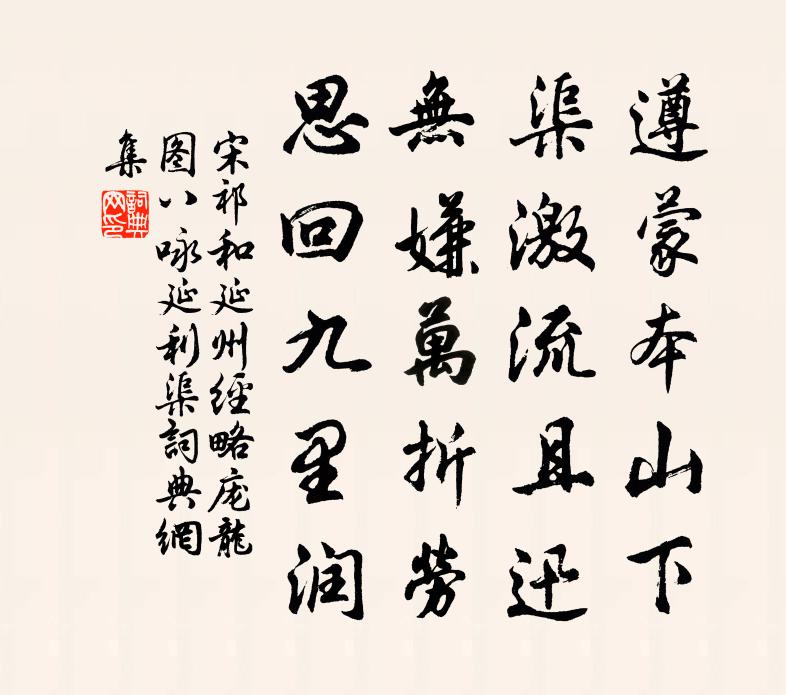 遵蒙本山下
渠激流且迅
無嫌萬折勞
思回九里润
宋祁和延州經略庞龍
图八咏延利渠詞典網
集
詞典
网印